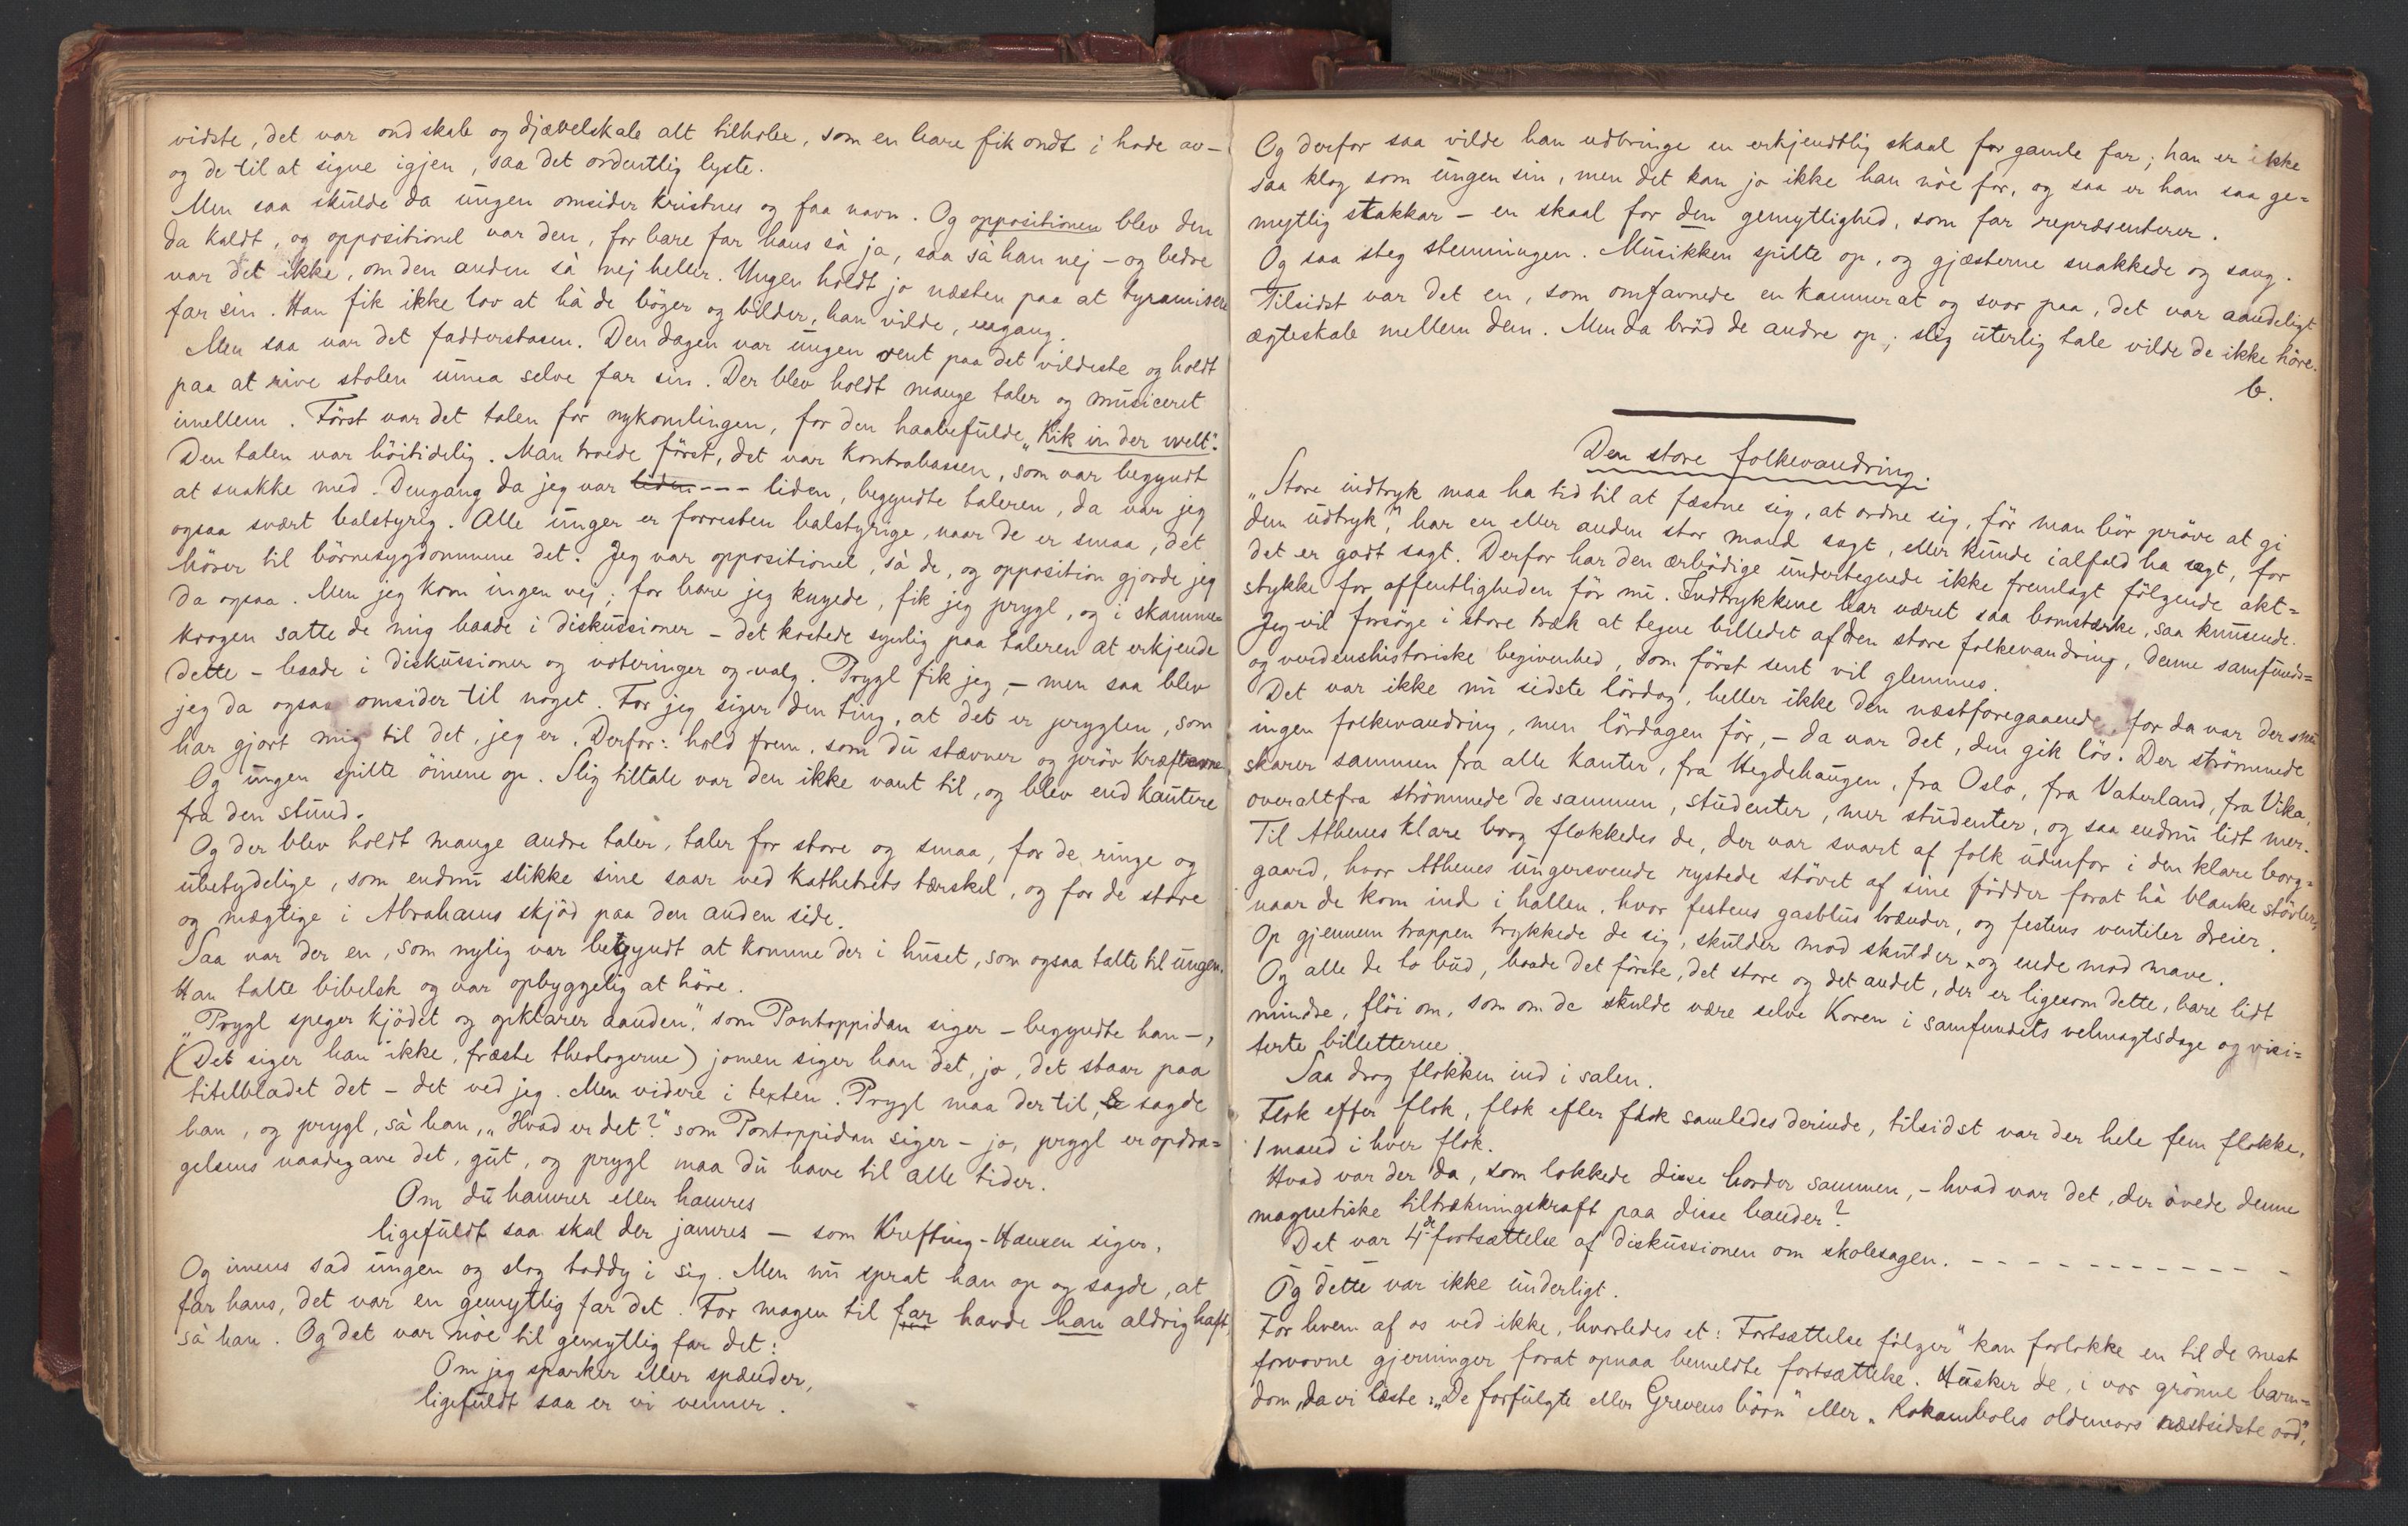 vidste, det var ondskab og djævelskab alt tilhobe, som en bare fik ondt i hode av –
og de til at signe igjen, saa det ordentlig lyste.
Men saa skulde da ungen omsider kristnes og faa navn. Og oppositionen blev den
da kaldt, og oppositionel var den, for bare far hans sà ja, saa sà han nej – og bedre
var det ikke, om den anden sà nej heller. Ungen holdt jo næsten paa at tyranisere
far sin. Han fik ikke lov at hà de bøger og bilder, han vilde, engang.
Men saa var det fadderstasen. Den dagen var ungen rent paa det vildeste og holdt
paa at rive stolen unna selve far sin. Der blev holdt mange taler og musiceret
imellem. Først var det talen for nykomlingen, for den haabefulde „Kik in der welt".
Den talen var høitidelig. Man troede først, det var kontrabassen, som var begyndt
at snakke med. Dengang da jeg var liden --- liden, begyndte taleren, da var jeg
ogsaa svært balstyrig. Alle unger er forresten balstyrige, naar de er smaa, det
hører til børnesygdommene det. Jeg var oppositionel, sà de, og opposition gjorde jeg
da ogsaa. Men jeg kom ingen vej; for bare jeg knyede, fik jeg prygl, og i skamme-
krogen satte de mig baade i diskussioner – det kostede synlig paa taleren at erkjende
dette – baade i diskussioner og voteringer og valg. Prygl fik jeg, – men saa blev
jeg da ogsaa omsider til noget. For jeg siger den ting, at det er pryglen, som
har gjort mig til det, jeg er. Derfor: hold frem, som du stævner og prøv kræfterne
Og ungen spilte øinene op. Slig tiltale var den ikke vant til, og blev end kautere
fra den stund.
Og der blev holdt mange andre taler, taler for store og smaa, for de ringe og
ubetydelige, som endnu slikke sine saar ved kathetrets tærskel, og for de store
og mægtige i Abrahams skjød paa den anden side.
Saa var der en, som nylig var begyndt at komme der i huset, som ogsaa talte til ungen.
Han talte bibelsk og var opbyggelig at høre.
„Prygl speger kjødet og opklarer aanden", som Pontoppidan siger – begyndte han –,
(Det siger han ikke, fræste theologerne) jomen siger han det, jo, det staar paa
titelbladet det – det ved jeg. Men videre i texten. Prygl maa der til, sagde
han, og prygl, sà han, „Hvad er det?" som Pontoppidan siger – jo, prygl er opdra=
gelsens naadegave det, gut, og prygl maa du have til alle tider.
Om du hamrer eller hamres
ligefuldt saa skal der jamres – som Krefting-Hansen siger.
Og imens sad ungen og slog toddy i sig. Men nu sprat han op og sagde, at
far hans, det var en gemytlig far det. For magen til far havde han aldrig haft,
sà han. Og det var nòe til gemytlig far det:
Om jeg sparker eller spænder,
ligefuldt saa er vi venner.
Og derfor saa vilde han udbringe en erkjendtlig skaal for gamle far; han er ikke
saa klog som ungen sin, men det kan jo ikke han nòe for, og saa er han saa ge=
mytlig stakkar – en skaal for den gemytlighed, som far repræsenterer.
Og saa steg stemningen. Musikken spilte op, og gjæsterne snakkede og sang.
Tilsidst var det en, som omfavnede en kammerat og svor paa, det var aandeligt
ægteskab mellem dem. Men da brød de andre op; slig uterlig tale vilde de ikke høre.
b.
Den store folkevandring.
„Store indtryk maa ha tid til at fæstne sig, at ordne sig, før man bør prøve at gi
dem udtryk", har en eller anden stor mand sagt, eller kunde ialfald ha sagt, for
det er godt sagt. Derfor har den ærbødige undertegnede ikke fremlagt følgende akt=
stykke for offentligheden før nu. Indtrykkene har været saa bomstærke, saa knusende.
Jeg vil forsøge i store træk at tegne billedet af den store folkevandring, denne samfunds=
og verdenshistoriske begivenhed, som først sent vil glemmes.
Det var ikke nu sidste lørdag, heller ikke den næstforegaaende, for da var der
ingen folkevandring, men lørdagen før, – da var det, den gik løs. Der strømmede
skarer sammen fra alle kanter, fra Hegdehaugen, fra Oslo, fra Vaterland, fra Vika,
overaltfra strømmede de sammen, studenter, mer studenter, og saa endnu lidt mer.
Til Athenes klare borg flokkedes de, der var svart af folk udenfor i den klare borg=
gaard, hvor Athenes ungersvende rystede støvet af sine fødder forat hà blanke støvler,
naar de kom ind i hallen, hvor festens gasblus brænder, og festens ventiler dreier.
Op gjennem trappen trykkede de sig, skulder mod skulder og ende mod mave.
Og alle de to bud, baade det første, det store og det andet, der er ligesom dette, bare lidt
mindre, fløi om, som om de skulde være selve Koren i samfundets velmagtsdage og visi=
terte billetterne.
Saa drog flokken ind i salen.
Flok efter flok, flok efter flok samledes derinde, tilsidst var der hele fem flokke,
1 mand i hver flok.
Hvad var der da, som lokkede disse horder sammen, – hvad var det, der øvede denne
magnetiske tiltrækningskraft paa disse bander?
Det var 4de fortsættelse af diskussionen om skolesagen. – – – – – – – – – – –
Og dette var ikke underligt.
For hvem af os ved ikke, hvorledes et: Fortsættelse følger" kan forlokke en til de mest
forvovne gjerninger forat opnaa bemeldte fortsættelse. Husker de, i vor grønne barn=
dom, da vi læste: „De forfulgte eller Grevens børn" eller „Rokamboles oldemors næstsidste ord",